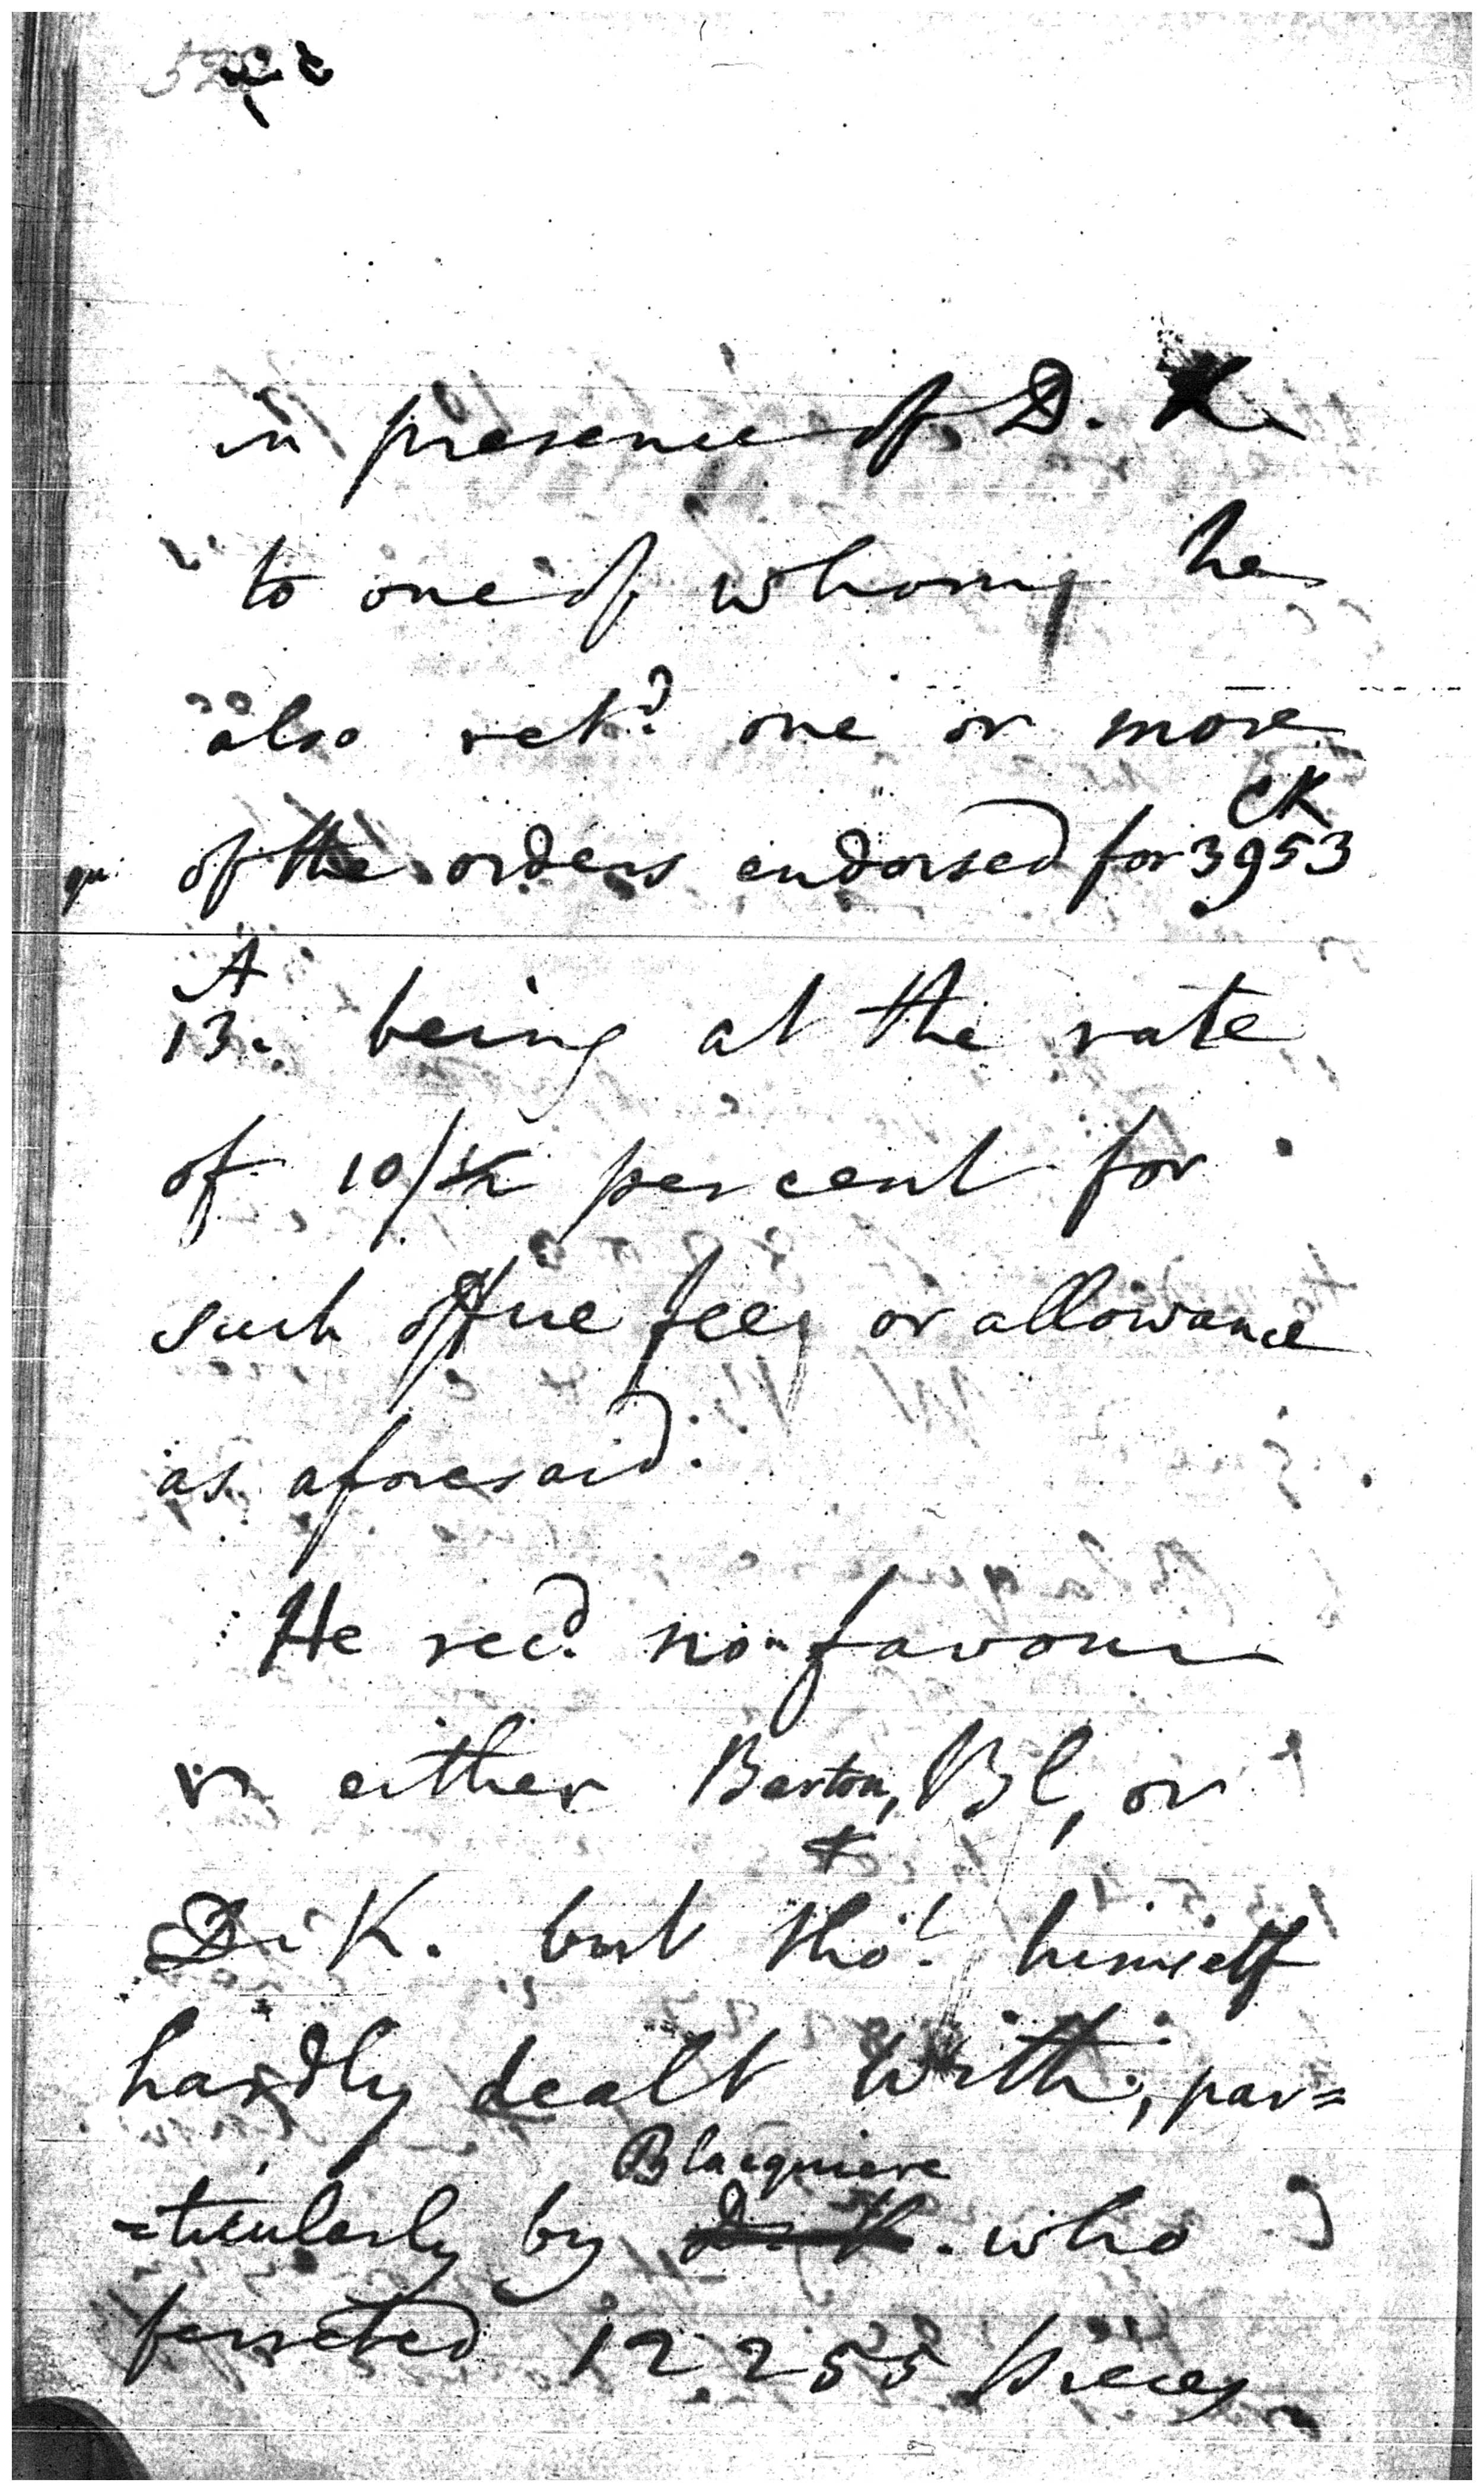 in presence of D. K.
to one of whom he
also retd. one or more
CK
qu: of the orders endorsed for 3953
A
13. being at the rate
of 10/½ per cent for
such office fees or allowance
as aforesaid.
He recd. no favour
either Barton, Bl, or
D. K. but tho't himself
hardly dealt with; par=
Blacquiere
=ticularly by D. K. who
12,255 pieces